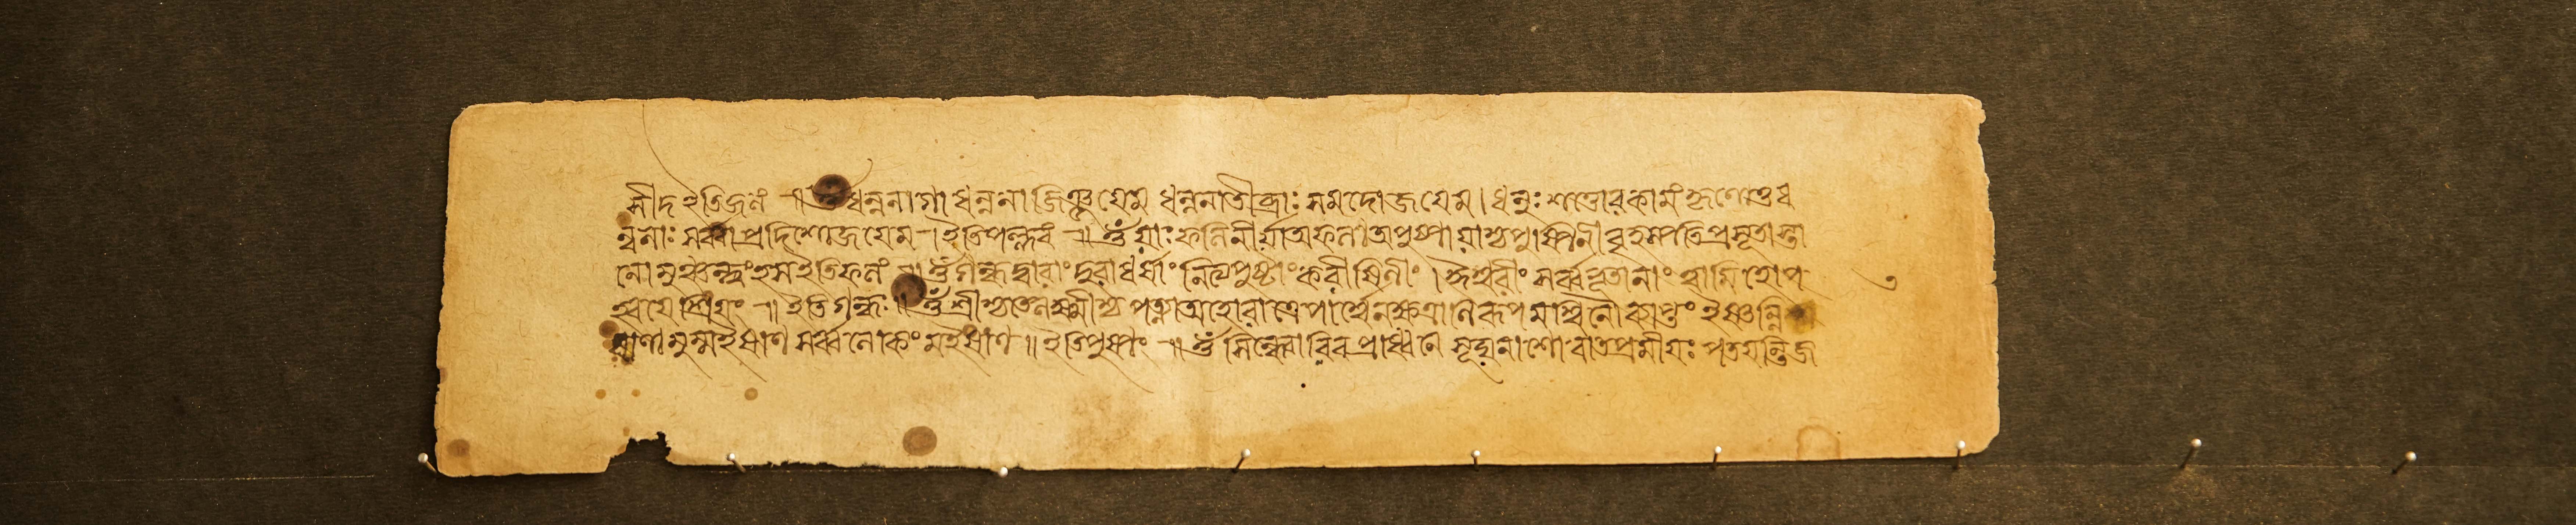 সীদ ইতিজলং ॥ ওঁ ধন্বনাগা ধন্বনা জিঞ্জয়েম ধন্বনাতীব্রাঃ সমদোজয়েম। ধনুঃ শত্রোরকামং কৃণোতুধ
ন্বনাঃ সর্ব্বাপ্রদিশোজয়েম ।ইতিপল্লবং ॥ ওঁ যাঃ ফলিনীর্যাঅফলাঅপুষ্পা যাশ্চপুষ্পিনী বৃহস্পতিপ্রসূতাস্তা
নো মুঞ্চন্ত্বংহস ইতিফলং ॥ ওঁ গন্ধদ্বারাং দুরাধর্ষাং নিত্যপুষ্টাং করীষিণীং । ঈশ্বরীং সর্ব্বভূতানাং ত্বামিহোপ
হ্বয়েশ্রিয়ং ॥ ইতিগন্ধঃ ॥ ওঁ শ্রীশ্চতেলক্ষ্মীশ্চ পত্ন্যাঅহোরাত্রেপার্শ্বেনক্ষত্রাণিরূপমশ্বিনৌব্যাত্তং ইষ্ণন্নি
ষাণামুম্মইষাণ সর্ব্বলোকং মইষাণ ॥ ইতিপুষ্পং ॥ ওঁ সিন্ধোরিবপ্রাধ্বনে সূঘনাশো বাতপ্রমীয়ঃ পতয়ন্তিজ